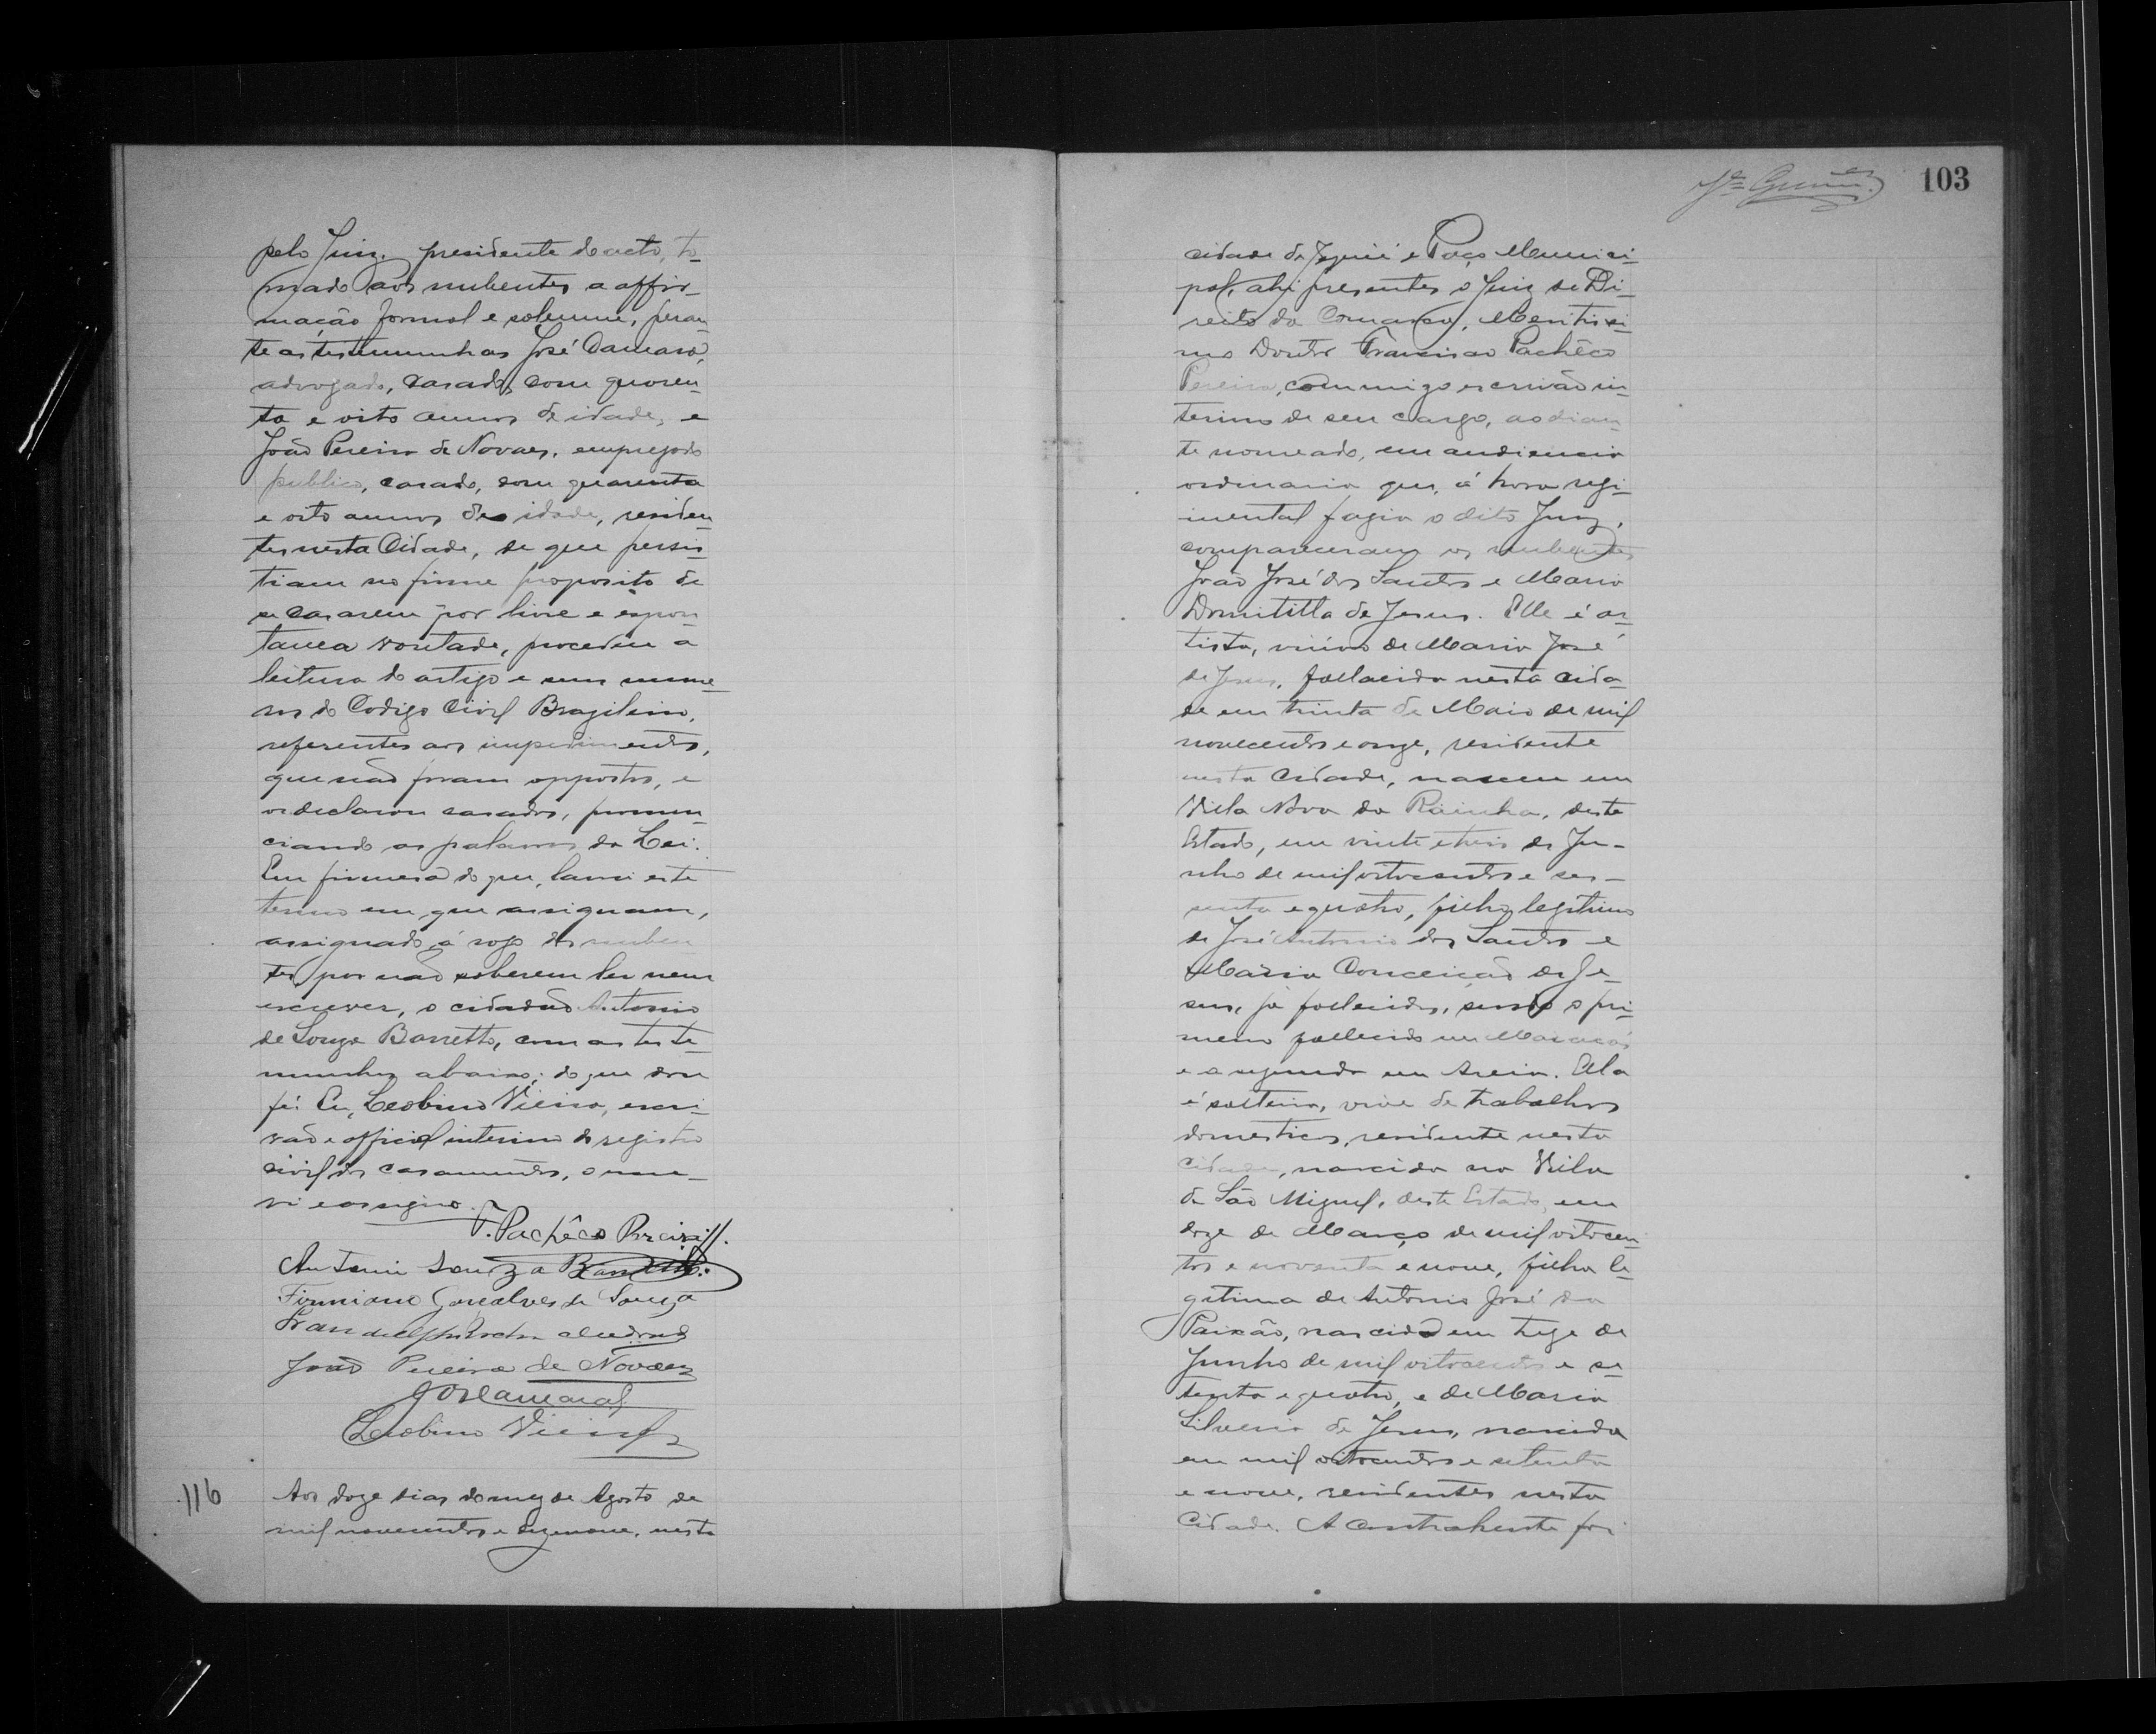 pelo Juiz presidente do acto, to-
mado aos nubentes a affir-
mação formal e solemne, peran-
te as testemunhas José Damaso,
advogado, casado, com quaren-
ta e oito annos de idade, e
João Pereira de Novaes, empregado
publico, casado, com quarenta
e oito annos de idade, residen-
tes nesta Cidade, de que persis-
tiam no firme proposito de
se casarem por livre e espon-
tanea vontade, procedeu a
leitura do artigo e seus nume-
ros do Codigo Civil Brazileiro,
referentes aos impedimentos,
que não foram oppostos, e
os declarou casados, pronun-
ciando as palavras da Lei.
Em firmesa do que, lavrei este
termo em que assignam,
assignado á rogo dos nuben-
tes por não saberem ler nem
escrever, o cidadão Antonio
de Souza Barretto, com as teste-
munhas abaixo; do que dou
fé. Eu, Leobino Vieira, escri-
vão e official interino do registro
civil dos casamentos, o escre-
vi e assigno.
F. Pachêco Pereira
Antonio Souza Barretto
Firmiano Gonçalves de Souza
João Pereira de Novaes
Leobino Vieira
116
Aos doze dias do mez de Agosto de
mil novecentos e dezenove, nesta
103
cidade de Jequié e Paço Munici-
pal, ahi presentes o Juiz de Di-
reito da Comarca, Meritissi-
mo Doutor Francisco Pachêco
Pereira, commigo escrivão in-
terino de seu cargo, ao dian-
te nomeado, em audiencia
ordinaria que, á hora regi-
mental fazia o dito Juiz,
compareceram os nubentes
João José dos Santos e Maria
Domitilla de Jesus. Elle é ar-
tista, viúvo de Maria José
de Jesus, fallecida nesta cida-
de em trinta de Maio de mil
novecentos e onze, residente
nesta Cidade, nasceu em
Villa Nova da Rainha, deste
Estado, em vinte e tres de Ju-
nho de mil oitocentos e ses-
senta e quatro, filho legitimo
de José Antonio dos Santos e
Maria Conceição de Je-
sus, já fallecidos, sendo o pri-
meiro fallecido em Maracás
e a segunda em Areia. Ella
é solteira, vive de trabalhos
domesticos, residente nesta
Cidade, nascida na Villa
de São Miguel, deste Estado, em
doze de Março de mil oitocen-
tos e noventa e nove, filha le-
gitima de Antonio José da
Paixão, nascido em treze de
Junho de mil oitocentos e se-
tenta e quatro, e de Maria
Silveria de Jesus, nascida
em mil oitocentos e setenta
e nove, residentes nesta
Cidade. A contrahente foi